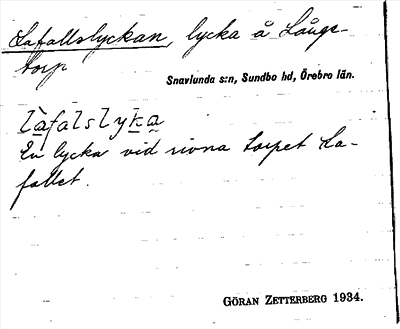 Lafallslyckan, lycka å Långs-
torp
Snavlunda s:n, Sundbo hd, Örebro län.
làfalslyka
En lycka vid rivna torpet La-
fallet.
GÖRAN ZETTERBERG 1934.